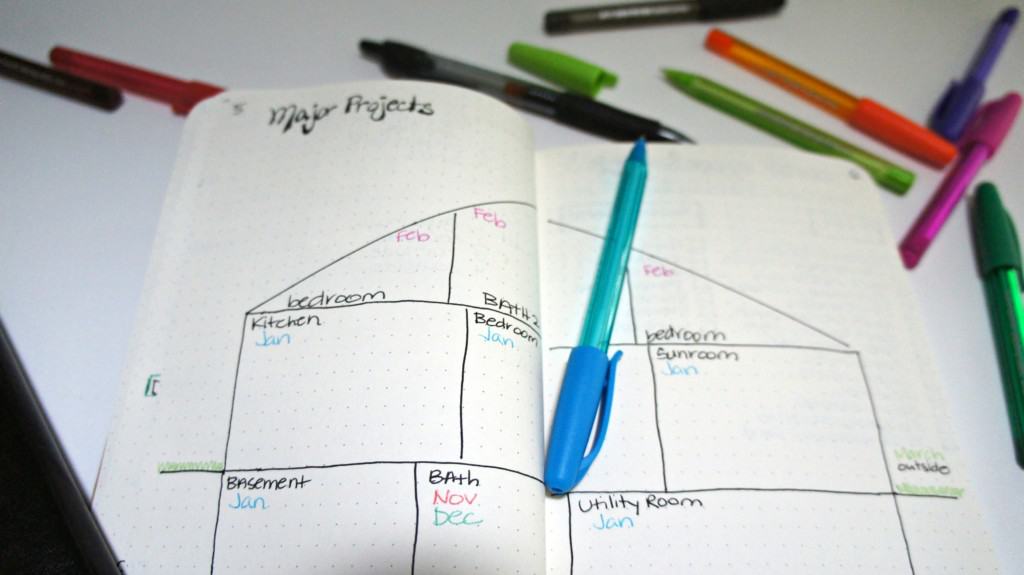 5
Major Projects
Feb
Feb
bedroom
BATH 2
Kitchen
Jan
Bedroom
Jan
Basement
Jan
BAth
Nov
Dec
Feb
bedroom
Sunroom
Jan
March
outside
Utility Room
Jan